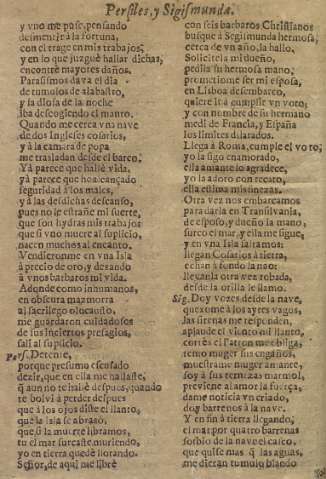 Persiles, y Sigismunda.
y vno me puse, pensando
desmentir a la fortuna,
con el trage en mis trabajos;
y en lo que juzguè hallar dichas,
encontrè mayores daños.
Parasismos dava el dia
de tumulos alabastro,
y la diosa de la noche
iba descogiendo el manto.
Quando me cerca vna nave
de dos Ingleses cosarios,
y à la camara de popa
me trasladan desde el barco.
Yà parece que hallè vida,
yà parece que han cansado
seguridad à los males,
y à las desdichas descanso,
pues no se estrañe mi suerte,
que son hydras mis trabajos
que si vno muere al suplicio,
nacen muchos al encanto.
Vendieronme en vna Isla
à precio de oro, y dexando
à vnos barbaros mi vida.
Adonde como inhumanos,
en obscura mazmorra
al sacrilego olocausto,
me guardaron cuidadosos
de los inciertos presagios,
salì al suplicio.
Pers. Detente,
porque presumo escusado
dezir, que en ella me hallaste,
q aun no te hallè despues, quando
te bolvì à perder despues
que à los ojos diste el llanto,
què la Isla se abrasò,
que, ò la muerte libramos,
tu el mar surcaste muriendo,
yo en tierra quedè llorando.
Señor, de aqui me librè
con seis barbaros Christianos
busquè à Segismunda hermosa,
cerca de vn año, la hallo.
Solicitela mi dueño,
pedila su hermosa mano,
prometiome ser mi esposa,
en Lisboa desembarco,
quiere ir à cumplir vn voto;
y con nombre de su hermano
medì de Francia, y España
los limites dilatados.
Llega à Roma, cumple el voto;
yo la sigo enamorado,
ella amante lo agradece,
yo la adoro con recato,
ella estima mis finezas.
Otra vez nos embarcamos
para darla en Transilvania,
de esposo, y dueño la mano,
surco el mar, y ella me sigue,
y en vna Isla saltamos:
llegan Cosarios à tierra,
echan à fondo la nao:
llevanla otra vez robada,
desde la orilla le llamo.
Sig. Doy vozes desde la nave,
quexome à los ayres vagos,
las sirenas me responden,
aplaude el viento mi llanto,
cortès el Patron me obliga,
temo muger sus engaños,
muestrame muger amante,
soy à sus ternezas marmol,
previene al amor la fuerça,
dame noticia vn criado,
doy barrenos à la nave.
Y en fin à tierra llegando,
el mar por quatro barrenas
sorbiò de la nave el casco,
que quise mas q̃ las aguas,
me dieran tumulo blando